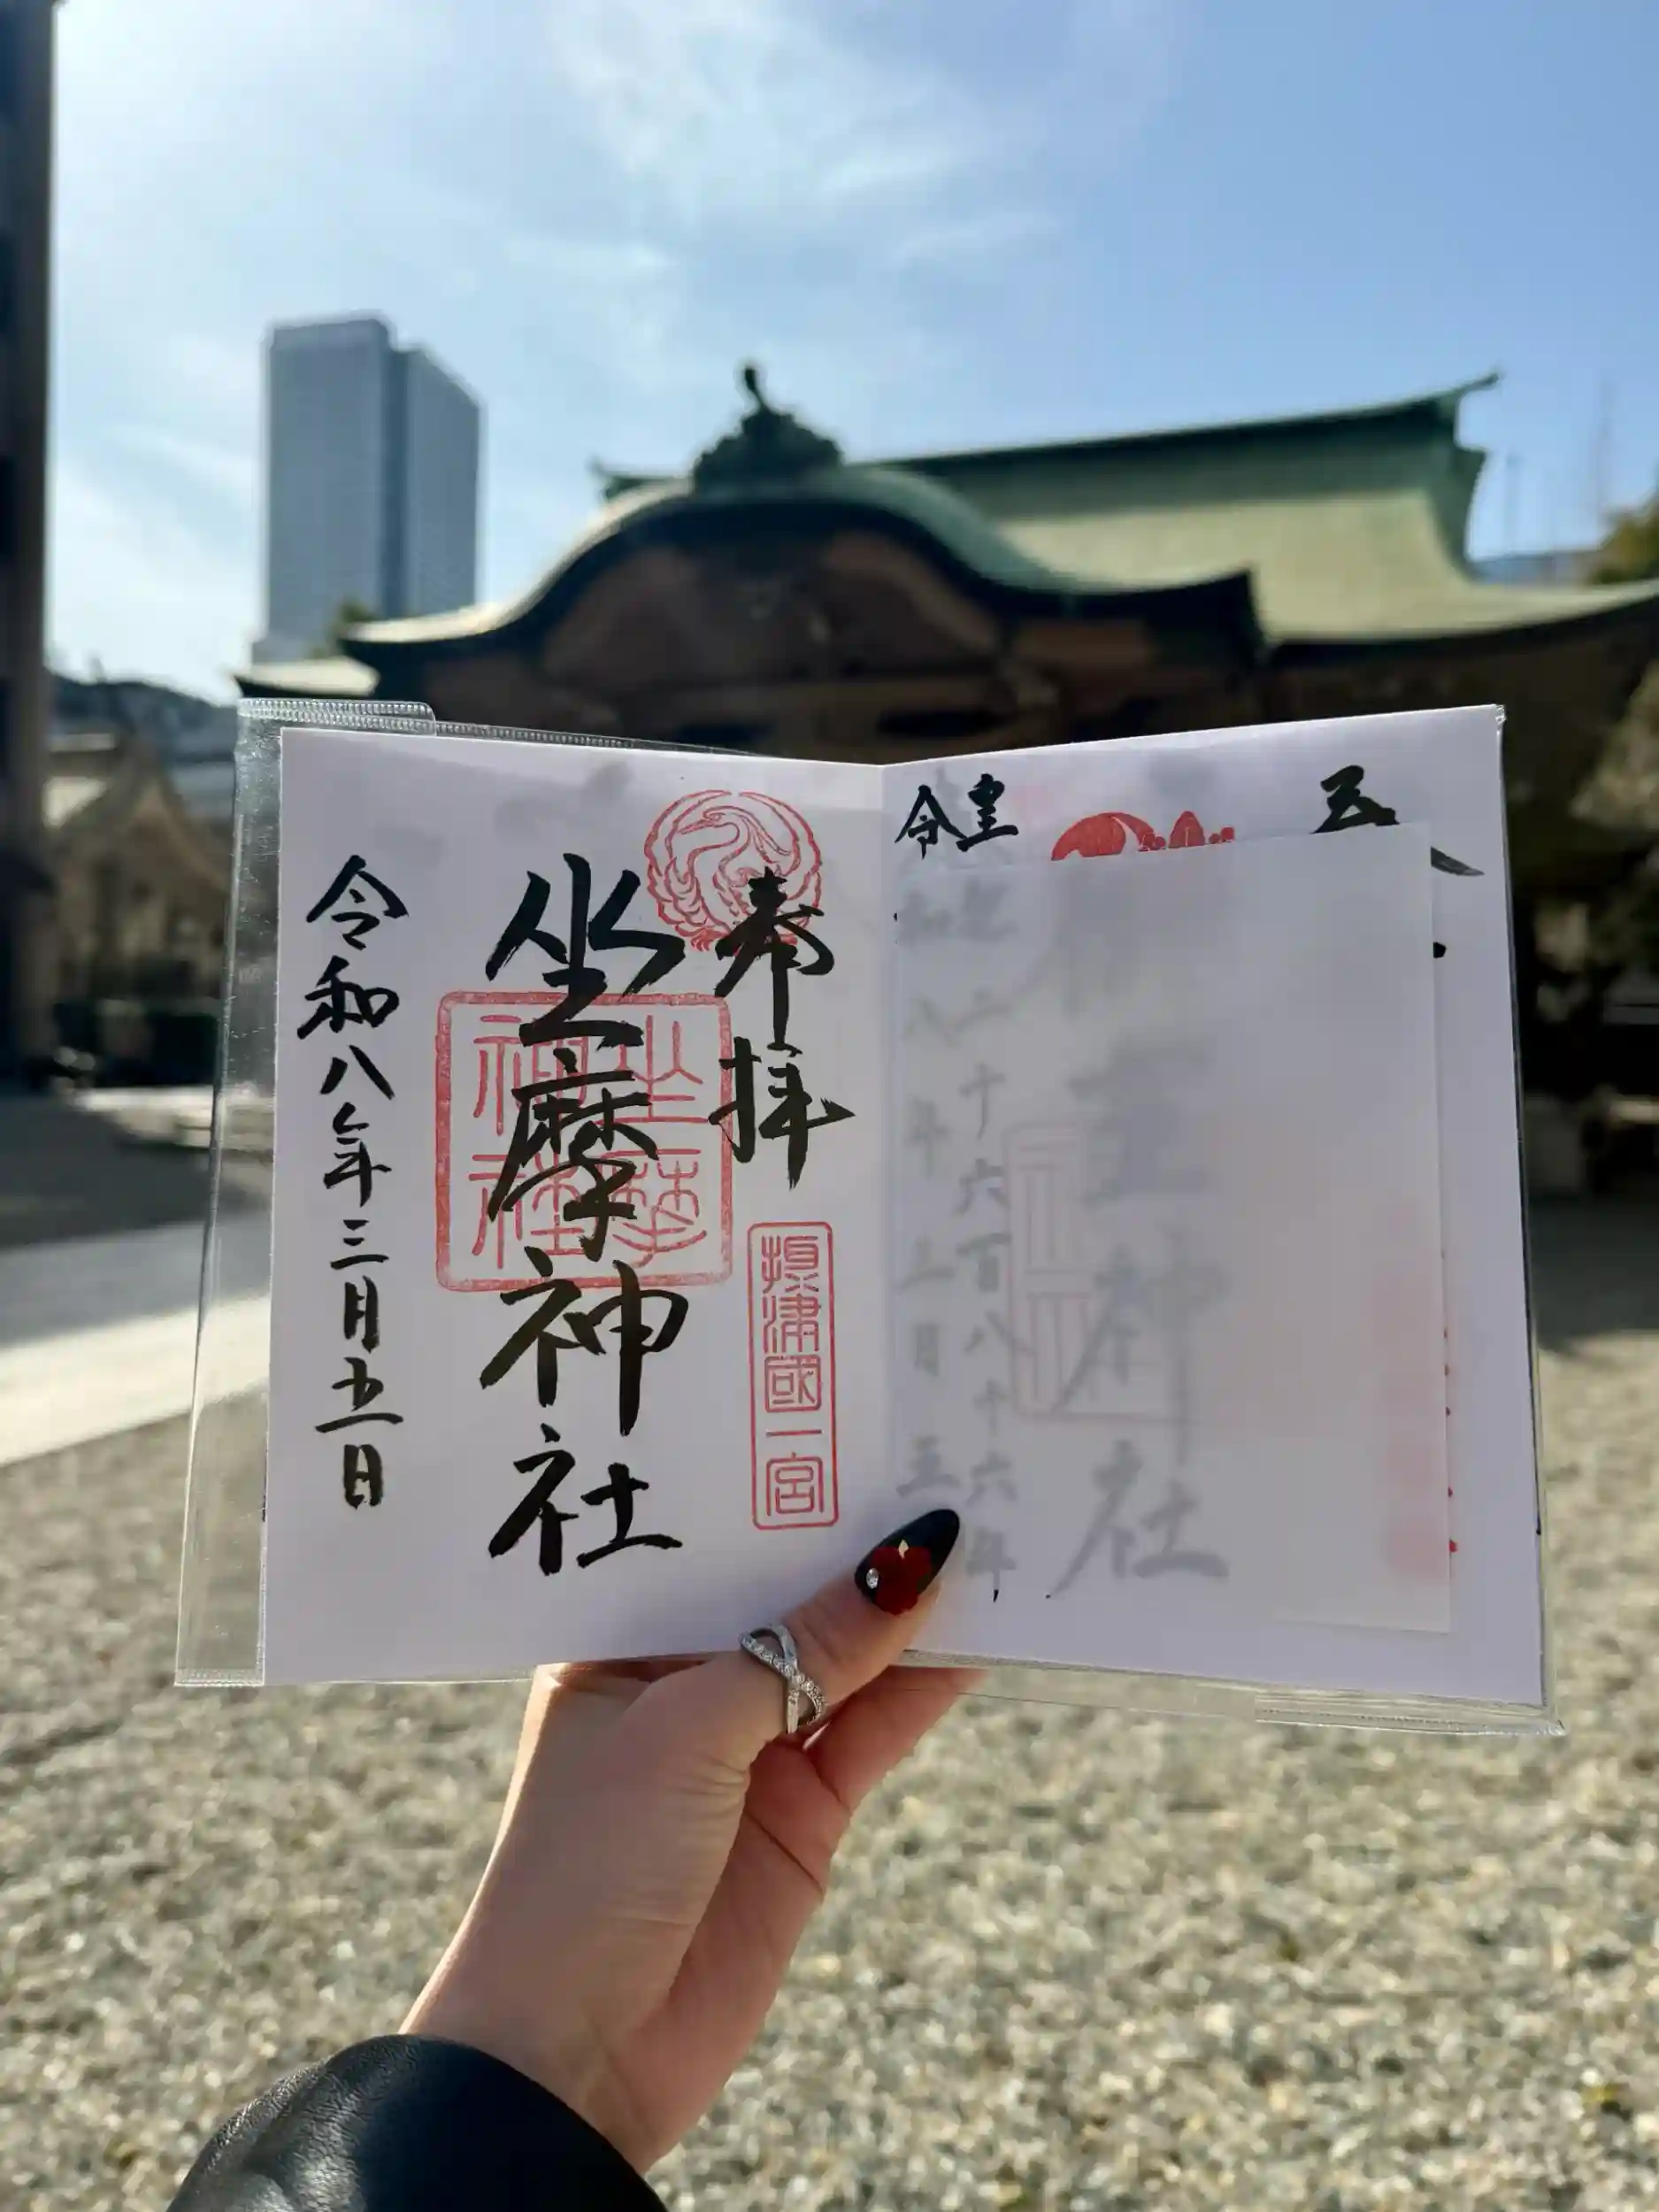 奉拝
摂津國一宮
坐摩神社
坐摩神社
令和八年三月五日
皇紀二千六百八十六年
令和八年三月五
神社